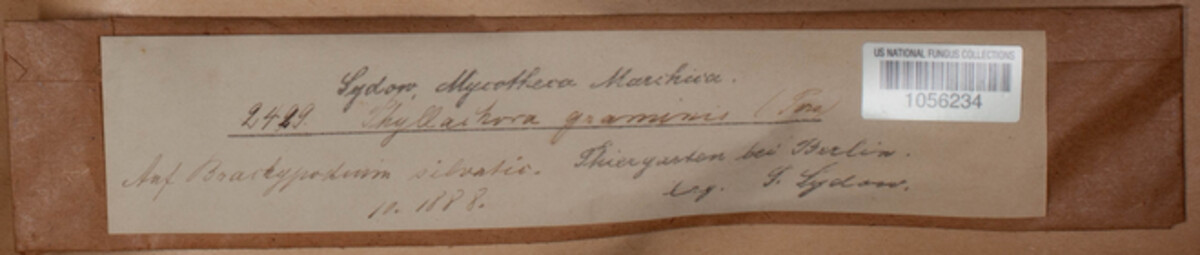 Sydow, Mycotheca Marchica.
2429. Phyllachora graminis (Pers)
Auf Brachypodium silvatic. Thiergarten bei Berlin.
10. 1888. leg. P. Sydow.
US NATIONAL FUNGUS COLLECTIONS
1056234